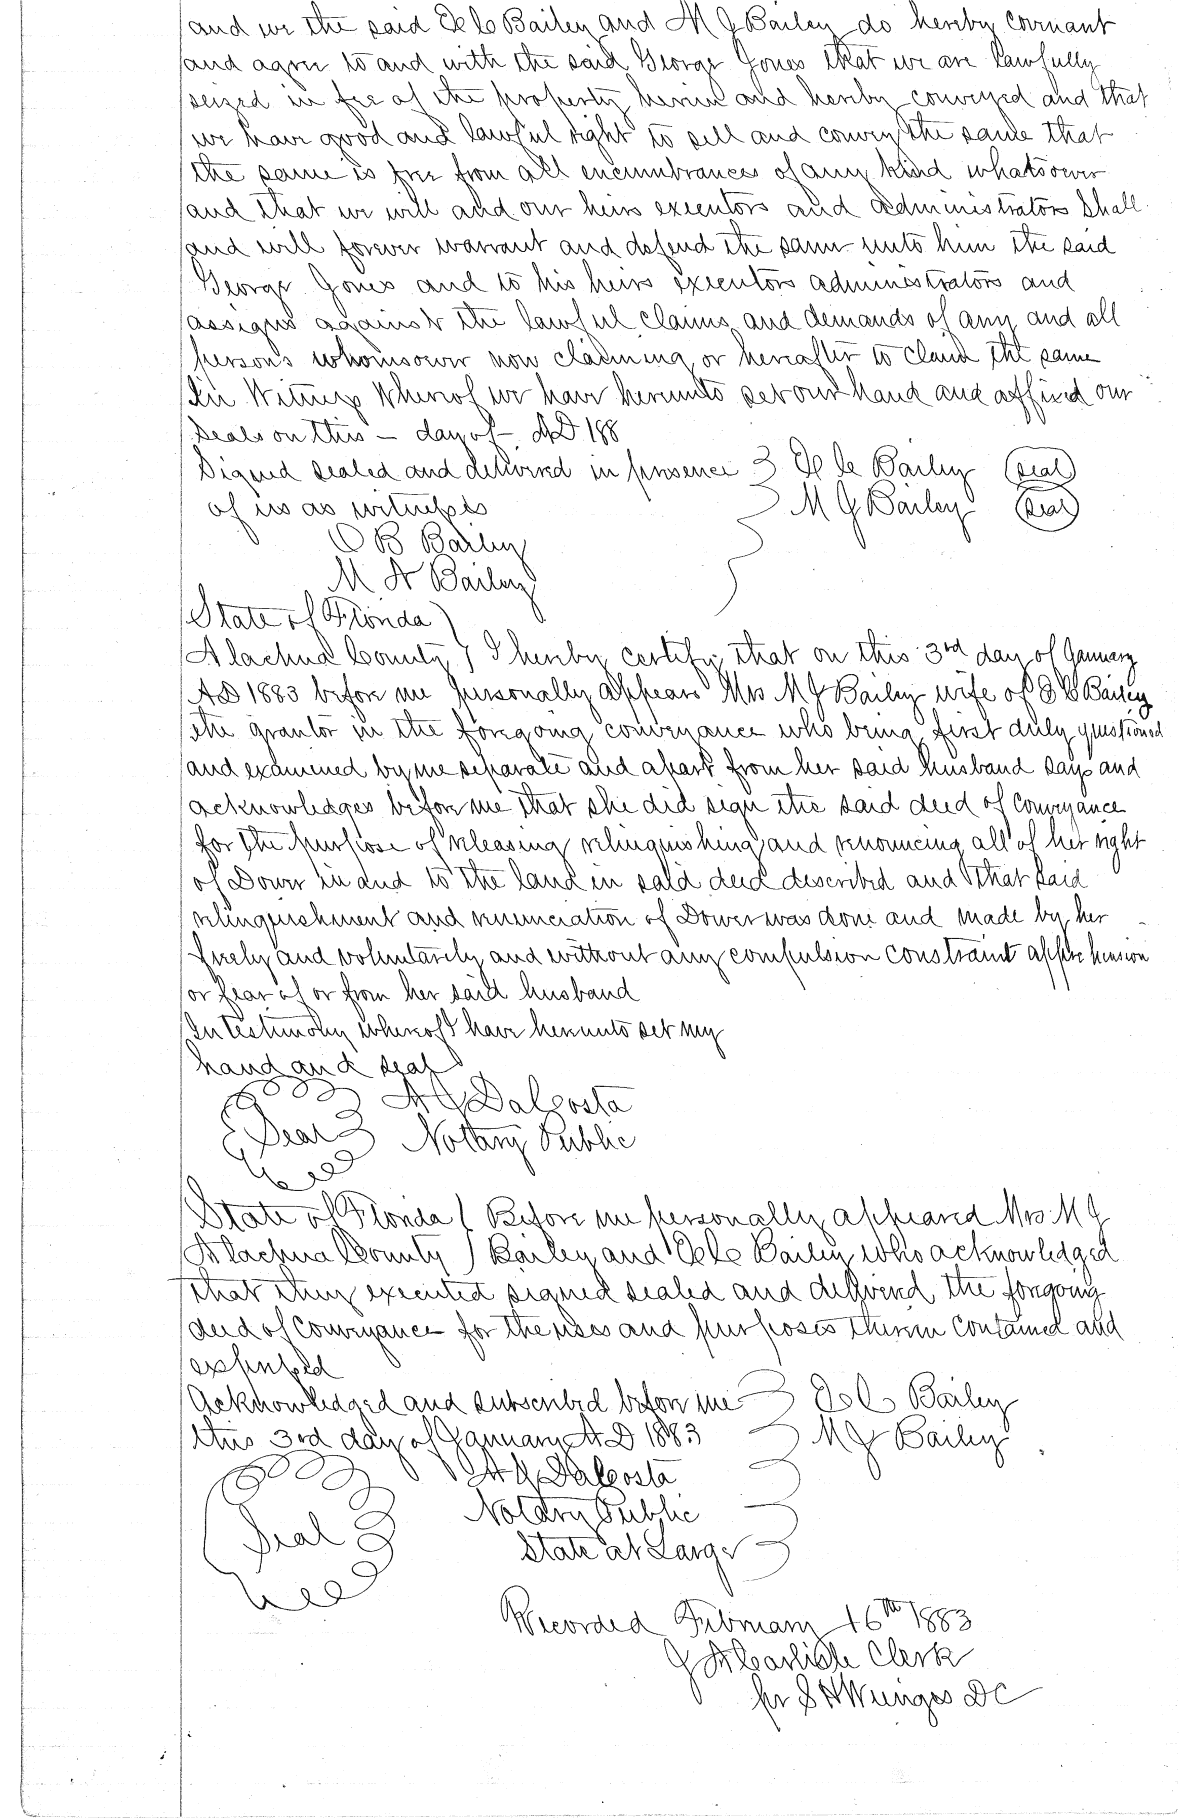 and we the said E C Bailey and M J Bailey do hereby covenant
and agree to and with the said George Jones that we are lawfully
seized in fee of the property herein and hereby conveyed and that
we have good and lawful right to sell and convey the same that
the same is free from all encumbrances of any kind whatsoever
and that we will and our heirs executors and administrators shall
and will forever warrant and defend the same unto him the said
George Jones and to his heirs executors administrators and
assigns against the lawful claims and demands of any and all
persons whomsoever now claiming or hereafter to claim the same
In Witness Whereof we have hereunto set our hand and affixed our
seals on this – day of – AD 188
Signed sealed and delivered in presence E C Bailey seal
of us as witnesses M J Bailey seal
O B Bailey
M A Bailey
State of Florida
Alachua County I hereby certify that on this 3rd day of January
AD 1883 before me personally appears Mrs M J Bailey wife of E C Bailey
the grantor in the foregoing conveyance who being first duly questioned
and examined by me separate and apart from her said husband says and
acknowledges before me that she did sign the said deed of conveyance
for the purpose of releasing relinquishing and renouncing all of her right
of Dower in and to the land in said deed described and that said
relinquishment and renunciation of Dower was done and made by her
freely and voluntarily and without any compulsion constraint apprehension
or fear of or from her said husband
In testimony whereof I have hereunto set my
hand and seal
A J DaCosta
Seal Notary Public
State of Florida Before me personally appeared Mrs M J
Alachua County Bailey and E C Bailey who acknowledged
that they executed signed sealed and delivered the foregoing
deed of conveyance for the uses and purposes therein contained and
expressed
Acknowledged and subscribed before me E C Bailey
this 3rd day of January AD 1883 M J Bailey
A J DaCosta
Seal Notary Public
State at Large
Recorded February 16th 1883
J A Carlisle Clerk
pr S H Wienges DC